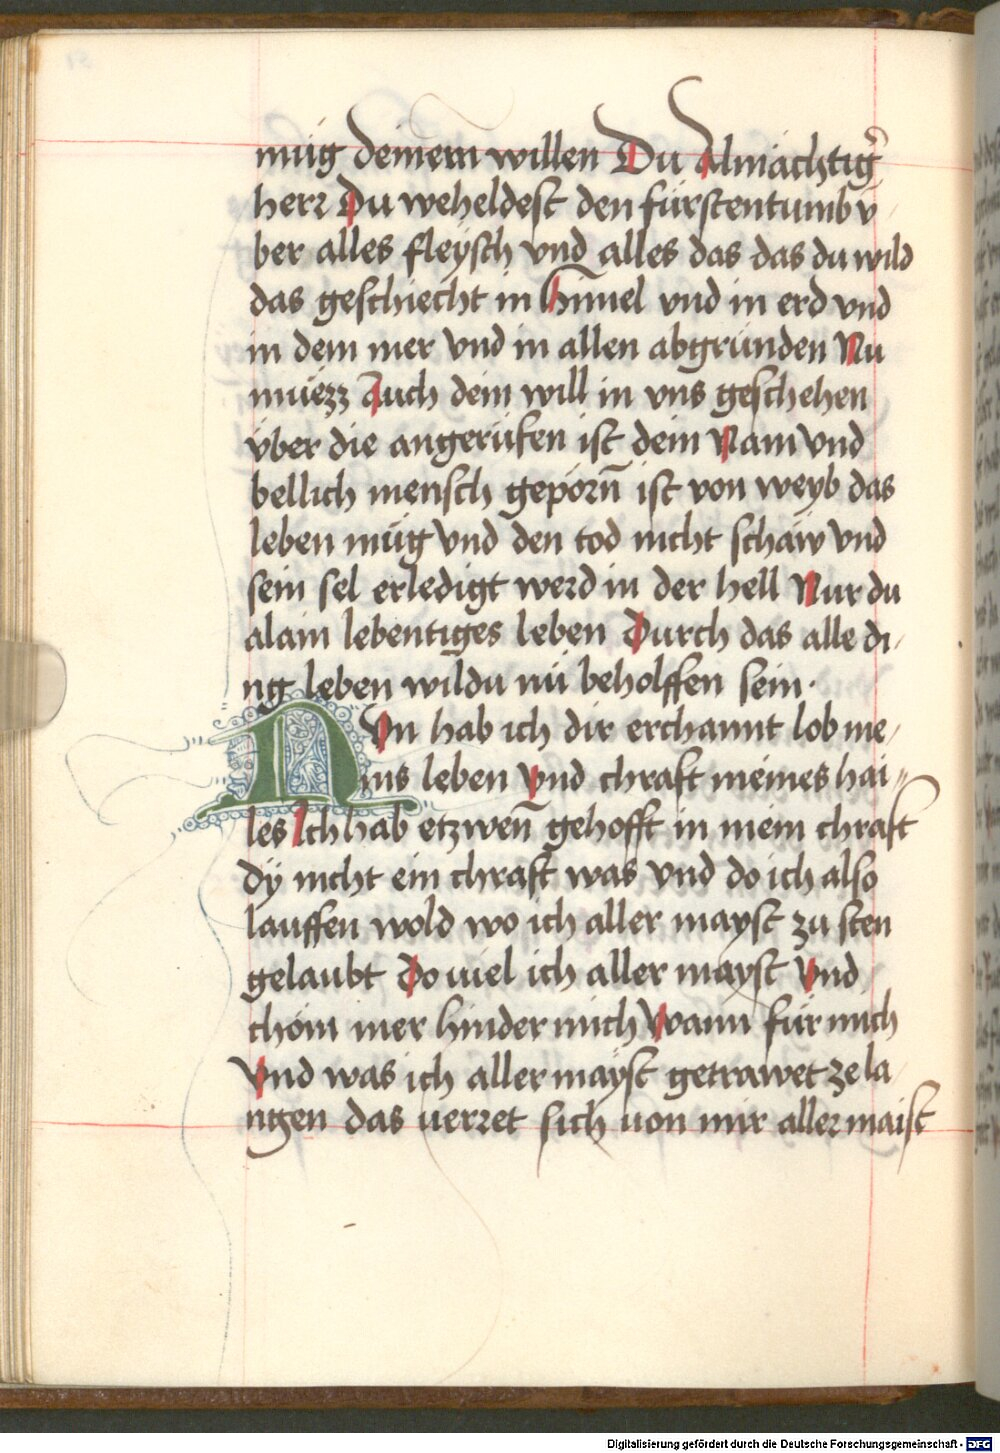 müg deinem willen Du Almächtigr̄
herr Du weheldest den fürstentumb v̈
ber alles fleÿsch vnd alles das das du wild
das geschiecht in Himel vnd in erd vnd
in dem mer vnd in allen abgründen Nu
müezz Auch dein will in vns geschehen
v̈ber die angerüfen ist dein Nam vnd
bellich mensch gepörñ ist von weyb das
leben müg vnd den tod nicht schaẅ vnd
sein sel erledigt werd in der hell Nur du
alain lebentiges leben Durch das alle di,
ng leben wildu nu beholffen sein.
NVn hab ich dir erchannt lob me,
ins leben Vnd chraft meines hai,,
les Ich hab etzweñ gehofft in mein chraft
dÿ nicht ein chraft was vnd do ich also
lauffen wold wo ich aller mayst zu sten
gelaubt Do uiel ich aller mayst Vnd
chöm mer hinder mich Wann für mich
Vnd was ich aller mayst getrawet ze la,
ngen das uerret sich uon mir aller maist
Digitalisierung gefördert durch die Deutsche Forschungsgemeinschaft - DFG